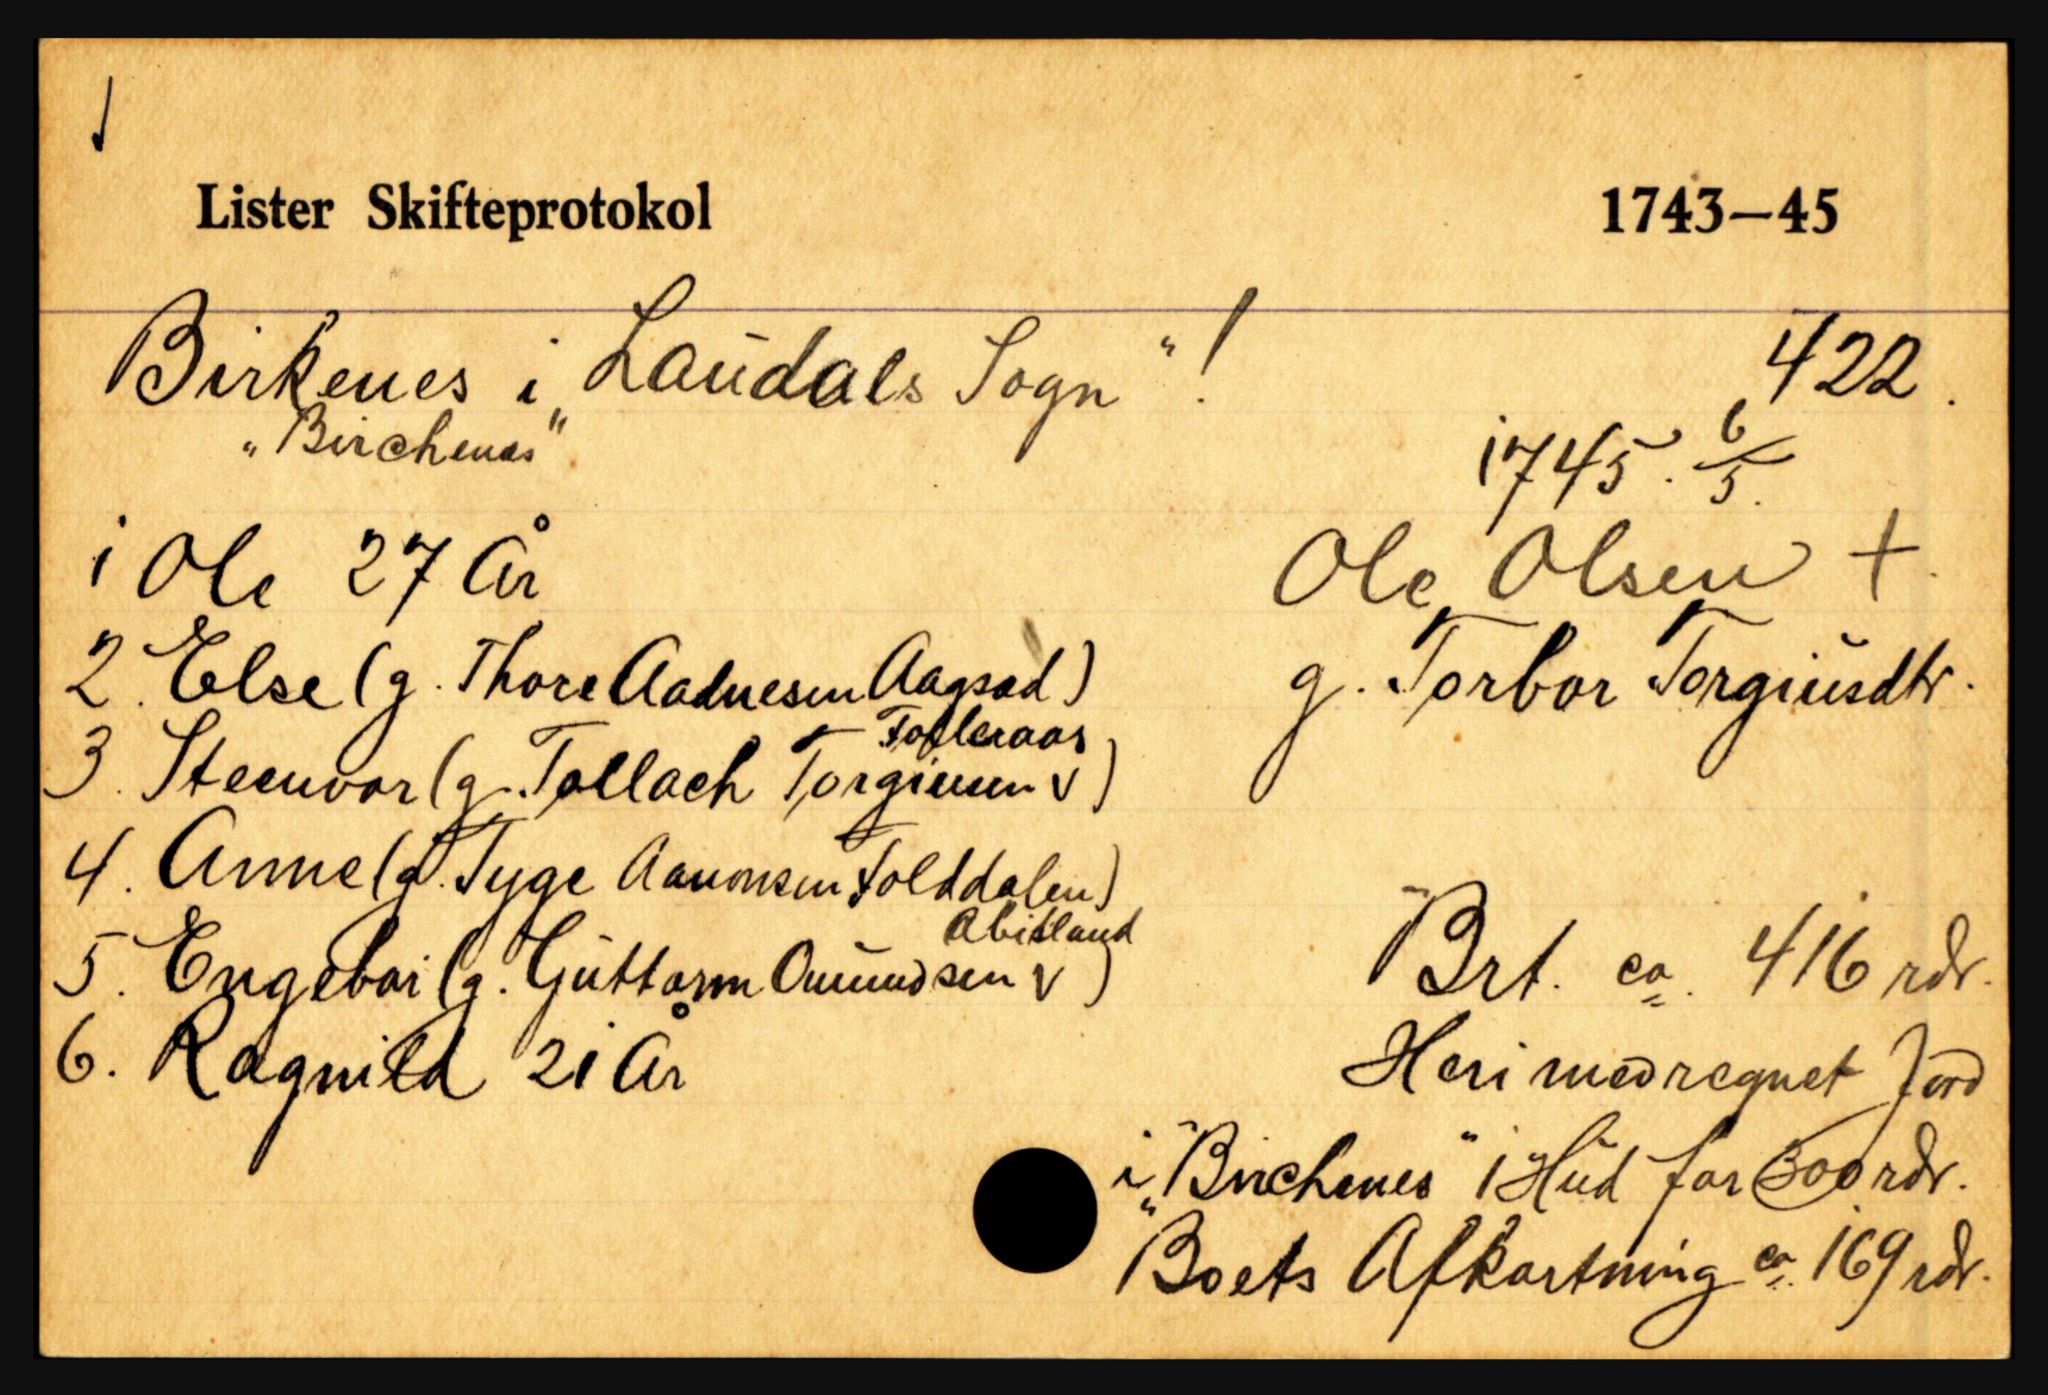 Lister Skifteprotokol 1743–45
Birkenes i „Laudals Sogn“! 422.
„Birchenes“
1745. 6/5.
1 Ole 27 År
Ole Olsen +.
2. Else (g. Thore Aadnesen Aagsad)
g. Torbor Torgiusdtr.
Folleraas
3. Steenvor (g. Tollach Torgiusen v)
4. Anne (g. Tyge Aanonsen Folddalen)
Abisland
5. Engebor (g. Guttorm Omundsen v)
Brt. ca. 416 rdr.
6. Ragnild 21 År
Heri medregnet Jord
i „Birchenes“ 1 Hud for 300 rdr.
Boets Afkortning ca. 169 rdr.